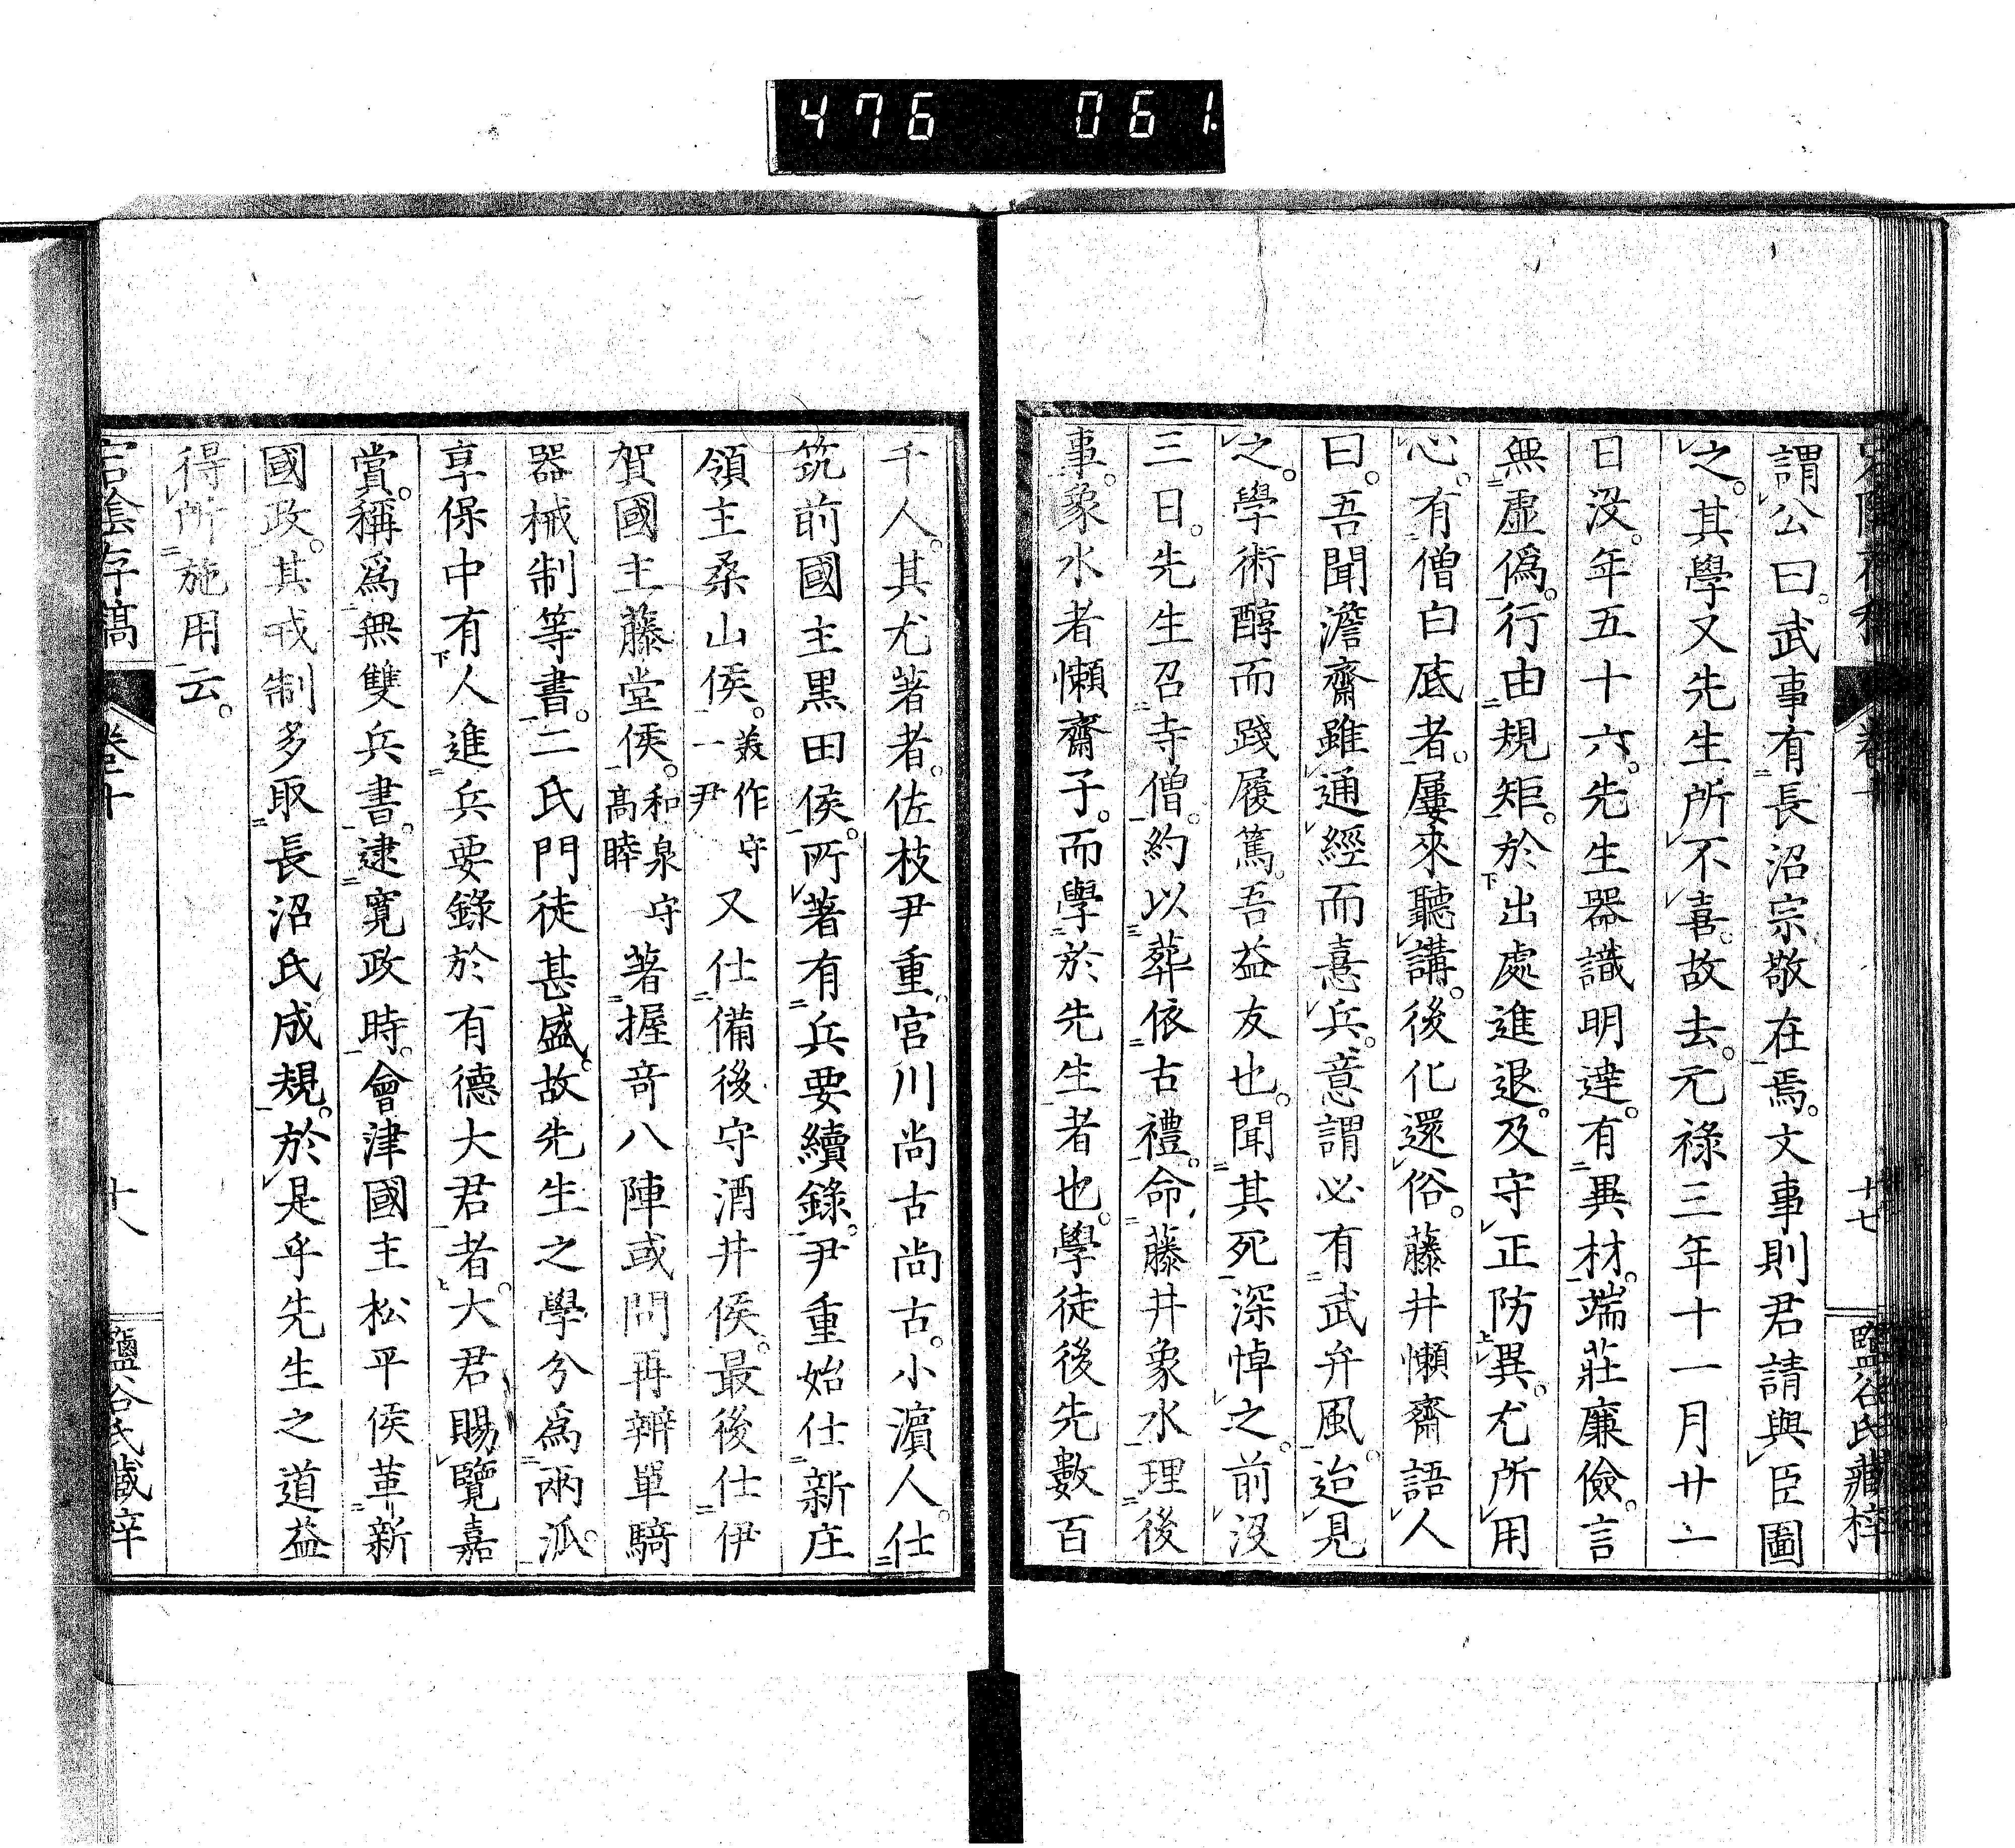 476 061
謂公曰。武事有長沼宗敬在焉。文事則君請與臣圖
之。其學又先生所不喜。故去。元祿三年十一月廿一
日没。年五十六。先生器識明達。有異材。端莊廉儉。言
無虛僞。行由規矩。於出處進退。及守正防異。尤所用
心。有僧白底者。屢來聽講。後化還俗。藤井懶齋語人
曰。吾聞澹齋雖通經而憙兵。意謂必有武弁風。迨見
之。學術醇而踐履篤。吾益友也。聞其死深悼之。前沒
三日。先生召寺僧。約以葬依古禮。命藤井象水理後
事。象水者懶齋子。而學於先生者也。學徒後先數百
十七
鹽谷氏藏梓
千人。其尤著者。佐枝尹重。宮川尚古。尚古。小濵人。仕
筑前國主黒田侯。所著有兵要續錄。尹重始仕新庄
領主桑山侯。美作守一尹又仕備後守酒井侯。最後仕伊
賀國主藤堂侯。和泉守高睦著握奇八陣或問再辨單騎
器械制等書。二氏門徒甚盛。故先生之學分爲兩派。
享保中有人進兵要錄於有德大君者。大君賜覽嘉
賞。稱爲無雙兵書。逮寬政時。會津國主松平侯革新
國政。其戎制多取長沼氏成規。於是乎先生之道益
得所施用云。
宕陰存稿
卷十
十八
鹽谷氏藏梓